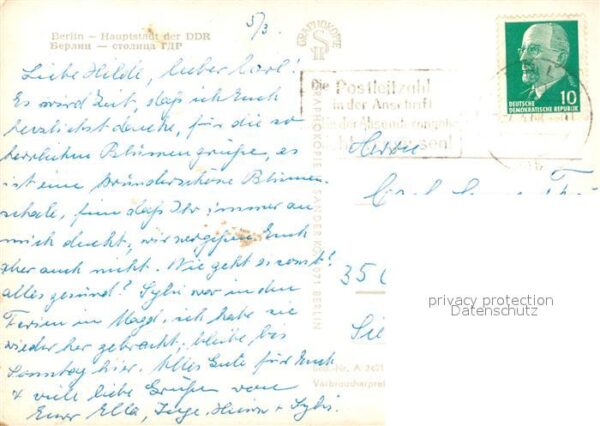 5/3.
Berlin – Hauptstadt der DDR
Берлин — столица ГДР
Liebe Hilde, lieber Karl!
Es wird Zeit, daß ich Euch
herzlichst danke, für die so
herrlichen Blumengrüße, es
ist eine wunderschöne Blumen-
schale, fein daß Ihr immer an
mich denkt, wir vergessen Euch
aber auch nicht. Wie geht es sonst?
alles gesund? Sylvi war in den
Ferien in Magd, ich habe sie
wieder her gebracht, bleibe bis
Sonntag hier. Alles Gute für Euch
+ viele liebe Grüße von
Eurer Ella, Inge, Heinz + Sylvi.
GRAPHOKOPIE
GRAPHOKOPIE SANDER KG 1071 BERLIN
Die Postleitzahl
in der Anschrift
DEUTSCHE
DEMOKRATISCHE REPUBLIK
10
Herrn
35
Sie
Best.-Nr. A
Verbraucherpre
privacy protection
Datenschutz